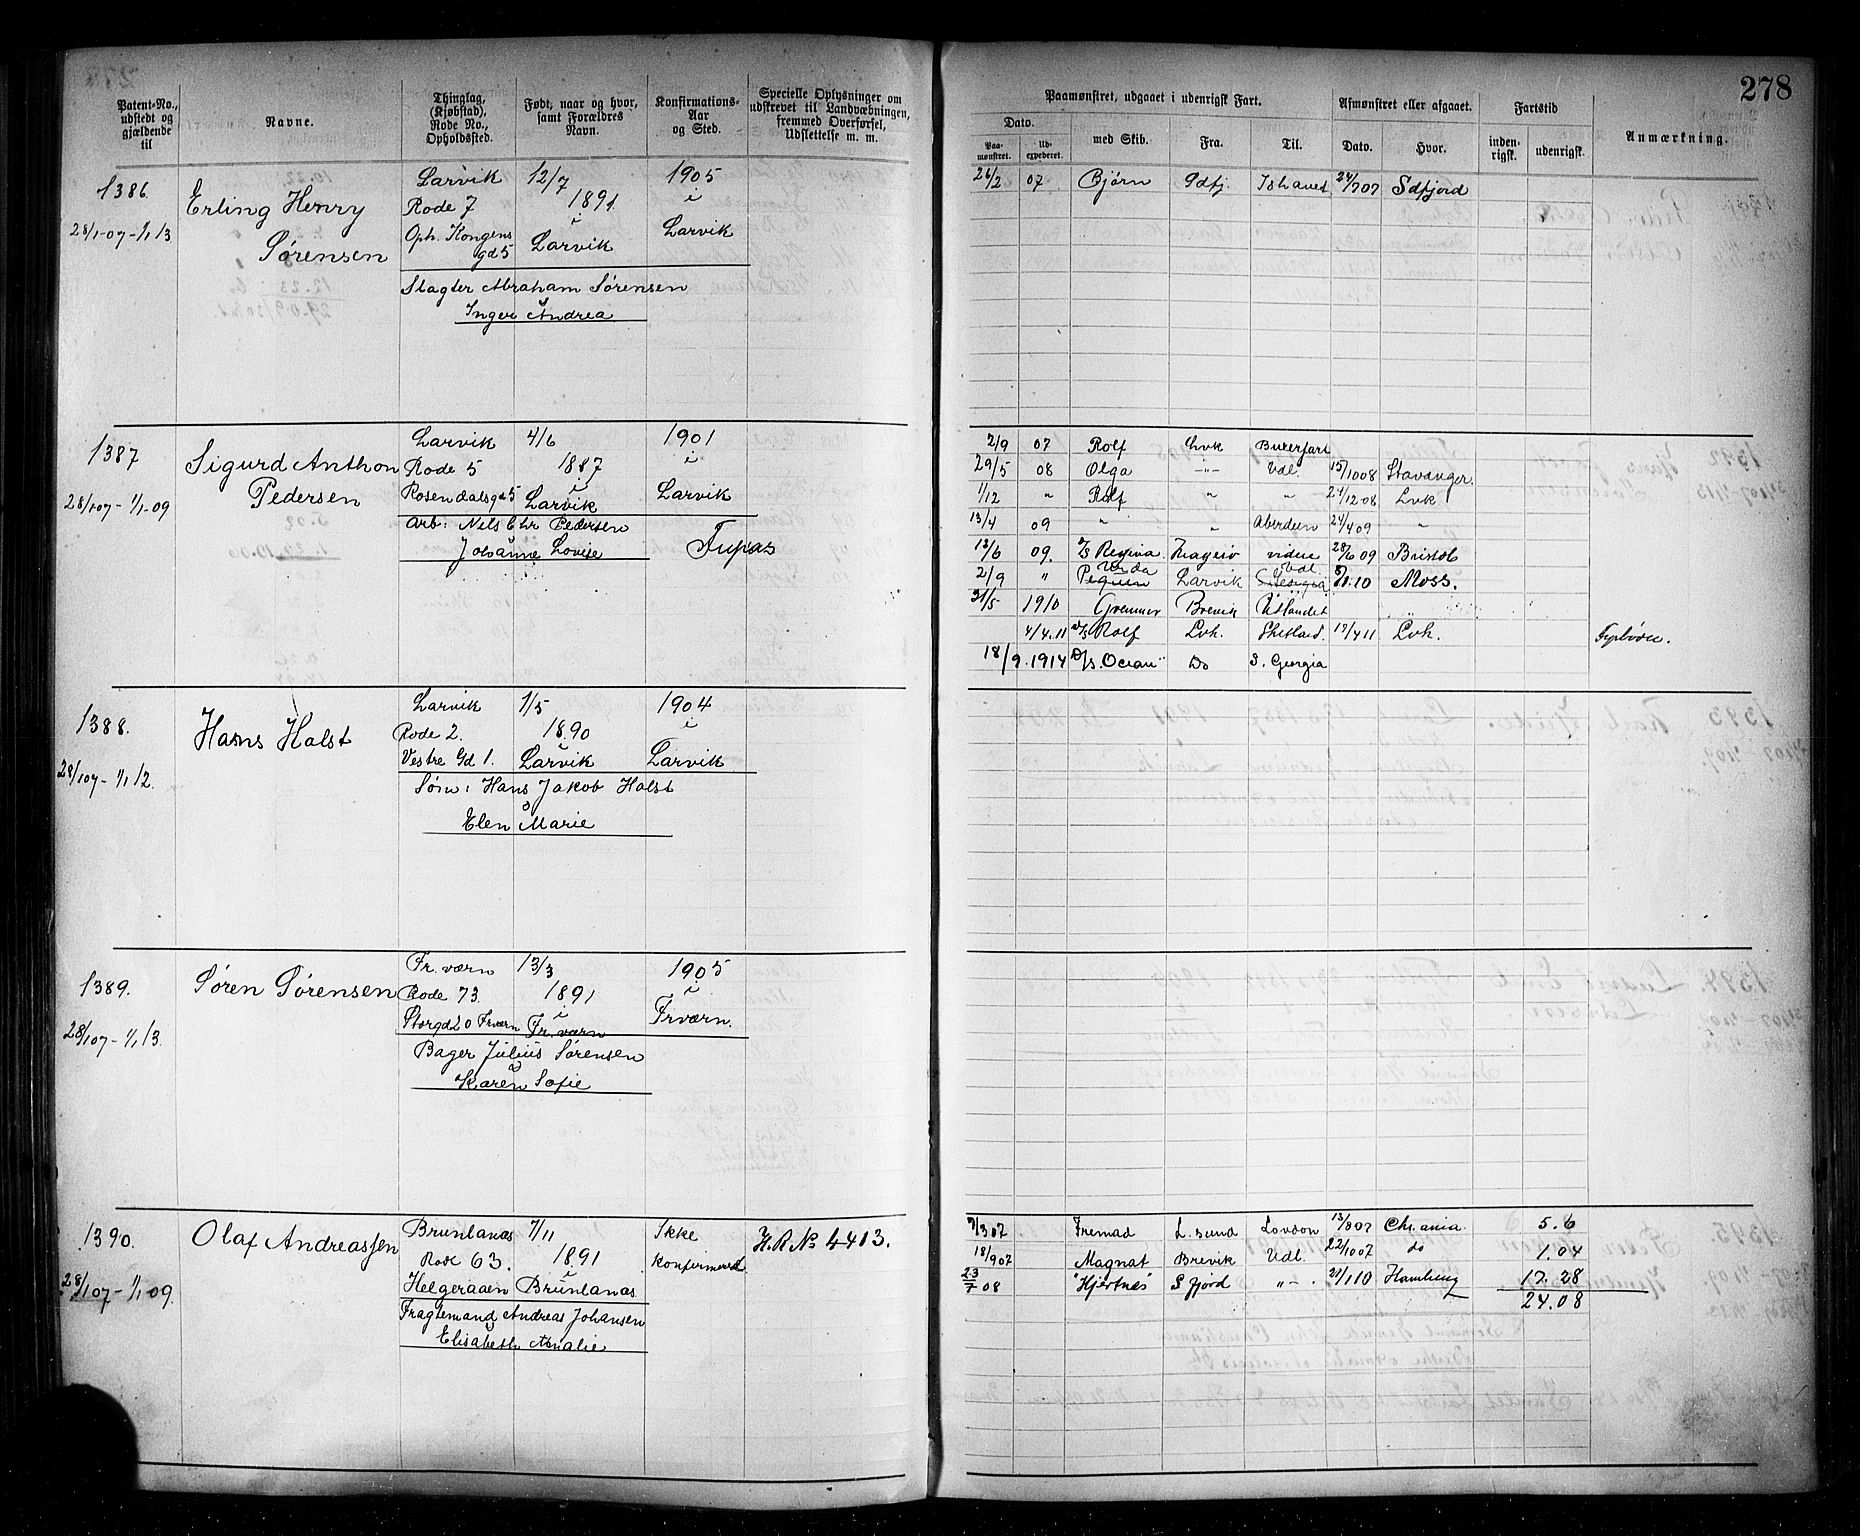 278
Patent-No., udstedt og gjældende til
Navne.
Thinglag, (Kjøbstad), Rode No., Opholdssted.
Født, naar og hvor, samt Forældres Navn.
Konfirmations-Aar og Sted.
Specielle Oplysninger om udskrevet til Landvæbningen, fremmed Overførsel, Udslettelse m. m.
Paamønstret, udgaaet i udenrigsk Fart.
Afmønstret eller afgaaet.
Fartstid
Anmærkning.
Dato.
Paa-mønstret.
Ud-expederet.
med Skib.
Fra.
Til.
Dato.
Hvor.
inden-rigsk.
udenrigsk.
1386
28/1-07-1/1 13
Erling Henry
Sørensen
Larvik
Rode 7
Oph. Kongens
gd 5
12/7
1891
i
Larvik
1905
i
Larvik
Slagter Abraham Sørensen
Inger Andrea
26/2 07 Bjørn Sdfj. Ishavet 24/7 07 Sdfjord
1387
28/1 07-1/1-09
Sigurd Anthon
Pedersen
Larvik
Rode 5
Rosendalsgd 5
4/6
1887
i
Larvik
1901
i
Larvik
Arb: Nils Chr Pedersen
Johanne Lovise
Fupas
2/9 07 Rolf Lvk
29/5 08 Olga -"- Udl. 15/10 08 Stavanger.
1/12 " Rolf " " 24/12 08 Lvk
13/4 09 " " Aberdeen 24/4 09 "
12/6 09. Regina videre 28/6 09 Bristol
2/9 " Larvik Udl. 10 Moss.
31/5 1910 Brevik Utlandet
4/4.11 D/S Rolf Lvk. Shetland. 19/4 11 Lvk.
Fyrbøder.
18/9.1914 D/S. "Ocean" Do S. Georgia
1388.
28/1 07-1/1 12.
Hans Holst
Larvik
Rode 2.
Vestre Gd 1.
1/5
1890
i
Larvik
1904
i
Larvik
Søm: Hans Jakob Holst
Elen Marie
1389.
28/1 07-1/1 13.
Søren Sørensen
Fr. værn
Rode 73
Storgd 20 Frværn
13/3
1891
i
Fr. værn
1905
i
Frværn.
Bager Julius Sørensen
Karen Sofie
1390.
28/1 07-1/1 09.
Olaf Andreassen
Brunlanæs
Rode 63.
Helgeraaen
7/11
1891
i
Brunlanæs
Ikke
konfirmered
H.R No 4413.
Fragtemand Andreas Johansen
Elisabeth Amalie
9/3 07 Fremad L. sund London 13/8 07 Chr.ania. 5.6
18/9 07 Magnat Brevik Udl. 22/10 07 do 1.04
23/7 08 "Hjertnes" S. fjord "- 1 10 Hamburg 17.28
24.08